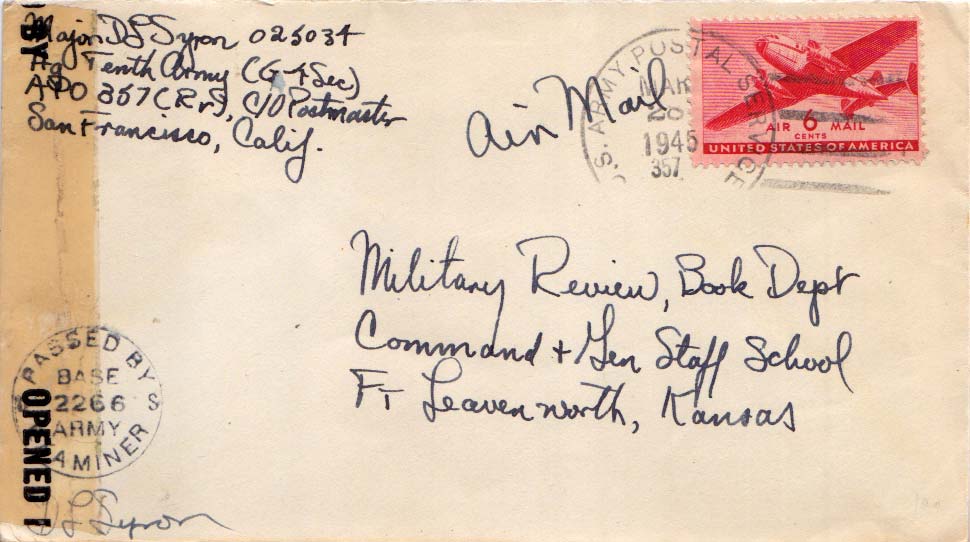 Major D L Syron 025034
Hq Tenth Army (G-4 Sec)
APO 357 (Rr), C/O Postmaster
San Francisco, Calif.
Air Mail
U.S. ARMY POSTAL SERVICE
MAR
28
1945
357
AIR 6 MAIL
CENTS
UNITED STATES OF AMERICA
Military Review, Book Dept
Command + Gen Staff School
Ft Leavenworth, Kansas
BY
OPENED
PASSED BY
BASE
2266
ARMY
AMINER
S
D L Syron